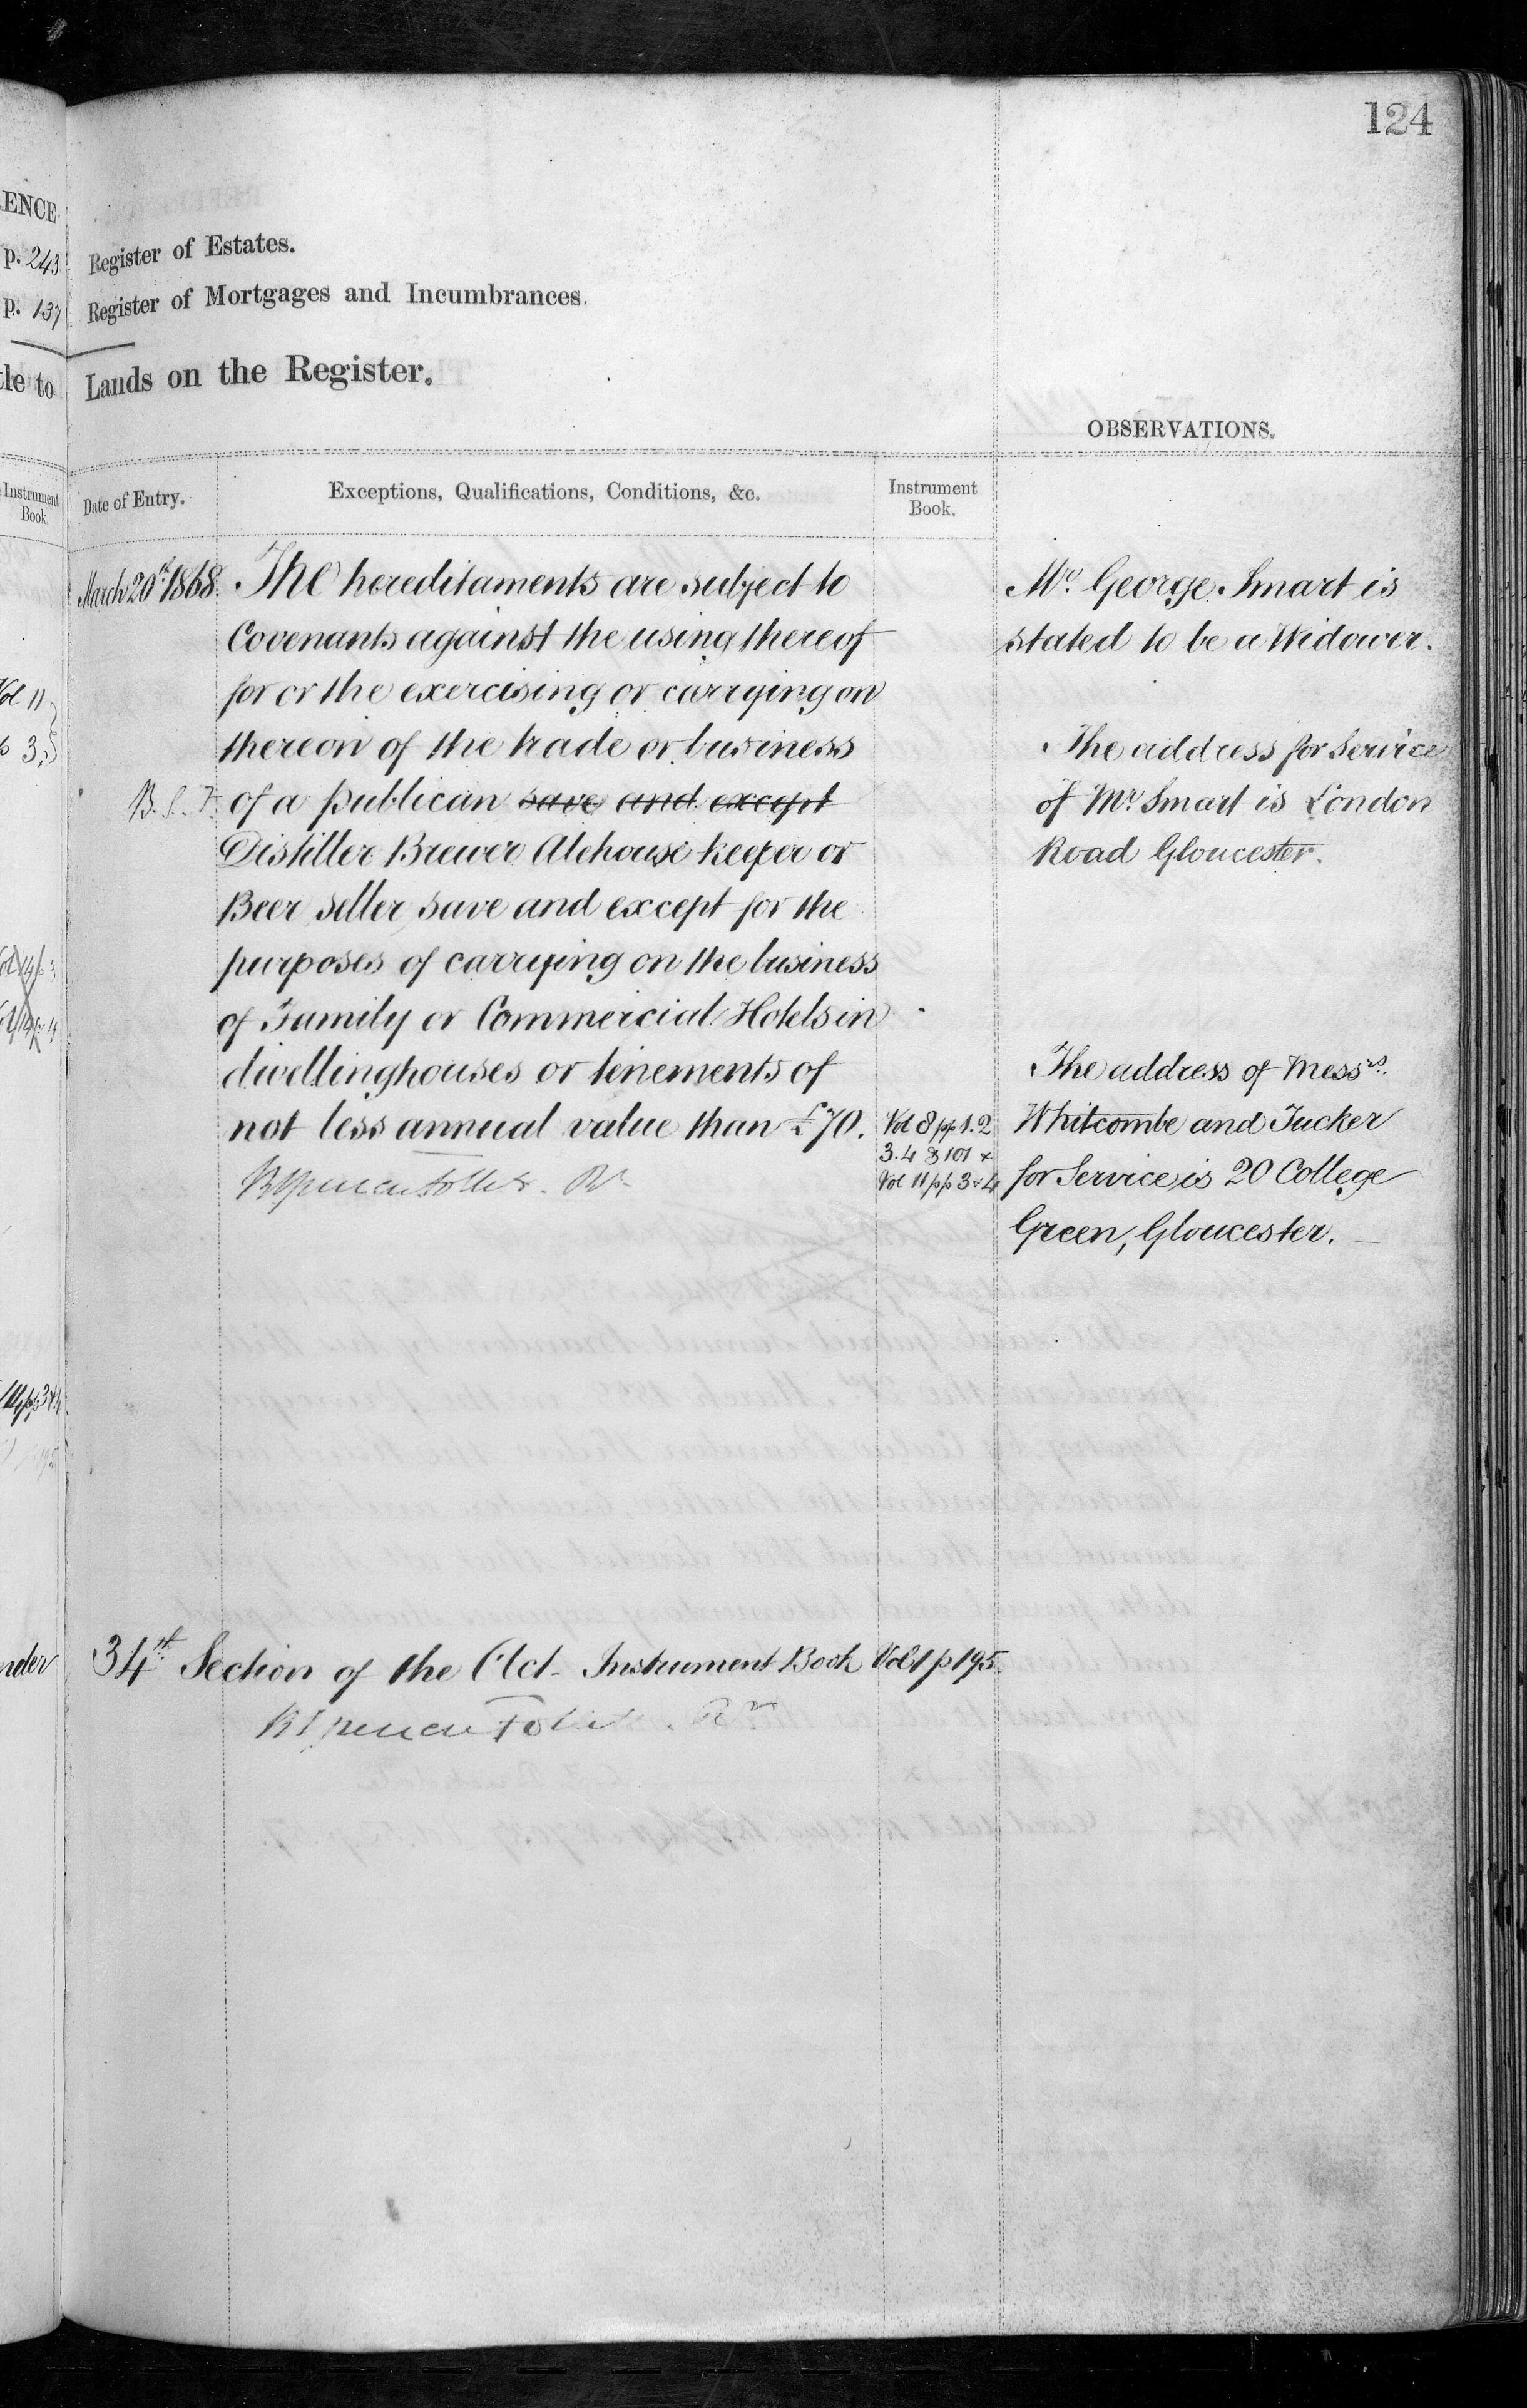 124
ENCE
p. 243
Register of Estates.
p. 137
Register of Mortgages and Incumbrances.
tle to
Lands on the Register.
OBSERVATIONS.
Instrument
Book.
Date of Entry.
Exceptions, Qualifications, Conditions, &c.
Instrument
Book.
March 20th 1868.
The hereditaments are subject to
Covenants against the using thereof
for or the exercising or carrying on
thereon of the trade or business
B. S. F.
of a publican save and except
Distiller Brewer Alehouse keeper or
Beer seller save and except for the
purposes of carrying on the business
of Family or Commercial Hotels in
dwellinghouses or tenements of
not less annual value than £70.
Vol 8 pp 1. 2
3. 4 & 101 &
Vol 11 pp 3 & 4
Mr. George Smart is
stated to be a Widower.
The address for Service
of Mr. Smart is London
Road Gloucester.
The address of Messrs.
Whitcombe and Tucker
for Service is 20 College
Green, Gloucester.
Vol 11
p 3.
nder
34th Section of the Act - Instrument Book Vol 1 p 195.